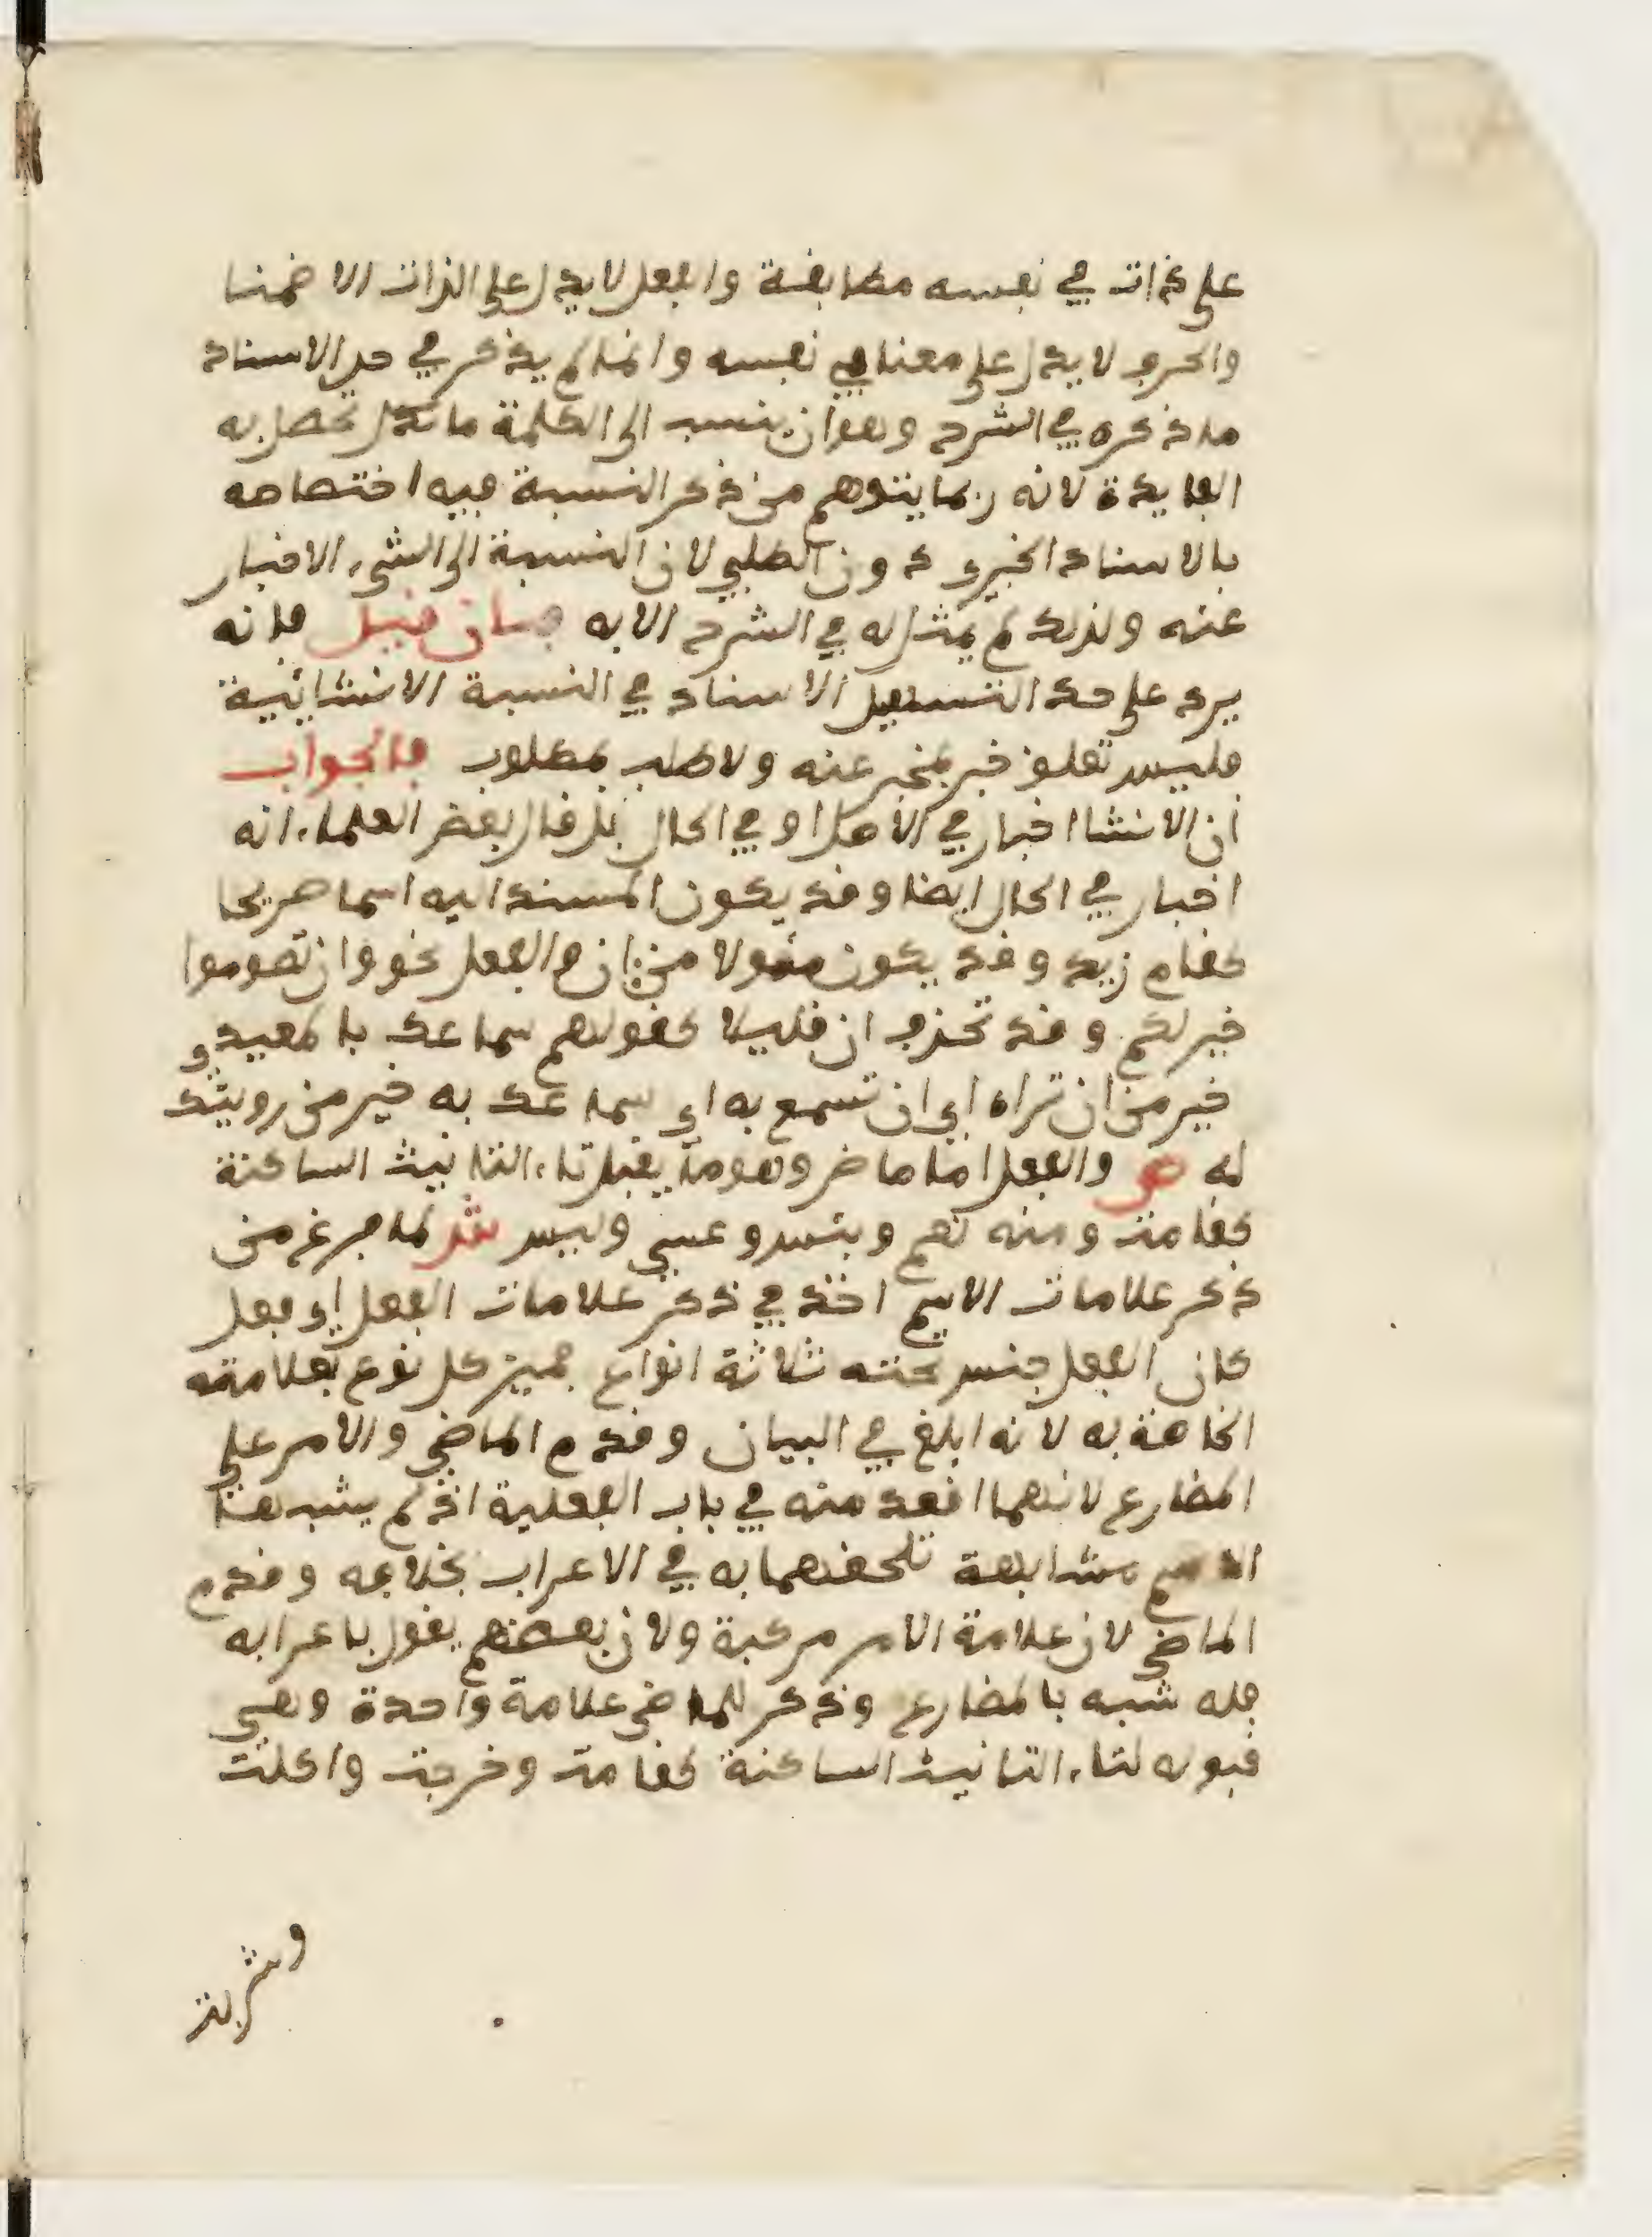 على ذات في نفسه مطابقة والفعل لا يدل على الذات الا ضمنا
والحرف لا يدل على معنا في نفسه وانما لم يذكر في حد الاسناد
ما ذكره في الشرح وهو ان ينسب الى الكلمة ما تحصل به
الفايدة لانه ربما يتوهم من ذكر النسبة فيه اختصاصه
بالاسناد الخبري دون الطلبي لان النسبة الى الشيء الاخبار
عنه ولذلك لم يمثل له في الشرح الا به فان قيل فانه
يرد على حد التسهيل الاسناد في النسبة الانشائية
فليس تعلق خبر بمخبر عنه ولا طلب بمطلوب فالجواب
ان الانشا اخبار في الاصل او في الحال بل قال بعض العلماء انه
اخبار في الحال ايضا وقد يكون المسند اليه اسما صريحا
كقام زيد وقد يكون مئولا من ان والفعل نحو وان تصوموا
خير لكم وقد تحذف ان قليلا كقولهم سماعك بالمعيدي
خير من ان تراه اي ان تسمع به اي سماعك به خير من رويتك
له ص والفعل اما ماض وهو ما يقبل تاء التانيث الساكنة
كقامت ومنه نعم وبئس وعسى وليس ش لما فرغ من
ذكر علامات الاسم اخذ في ذكر علامات الفعل اي فعل
كان الفعل جنس تحته ثلاثة انواع فميز كل نوع بعلامته
الخاصة به لانه ابلغ في البيان وقدم الماضي والامر على
المضارع لانهما اقعد منه في باب الفعلية اذ لم يشبها
الاسم مشابهة تلحقهما به في الاعراب بخلافه وقدم
الماضي لان علامة الامر مركبة ولان بعضهم يقول باعرابه
فله شبه بالمضارع وذكر للماضي علامة واحدة وهي
قبوله لتاء التانيث الساكنة كقامت وخرجت واكلت
وشربت